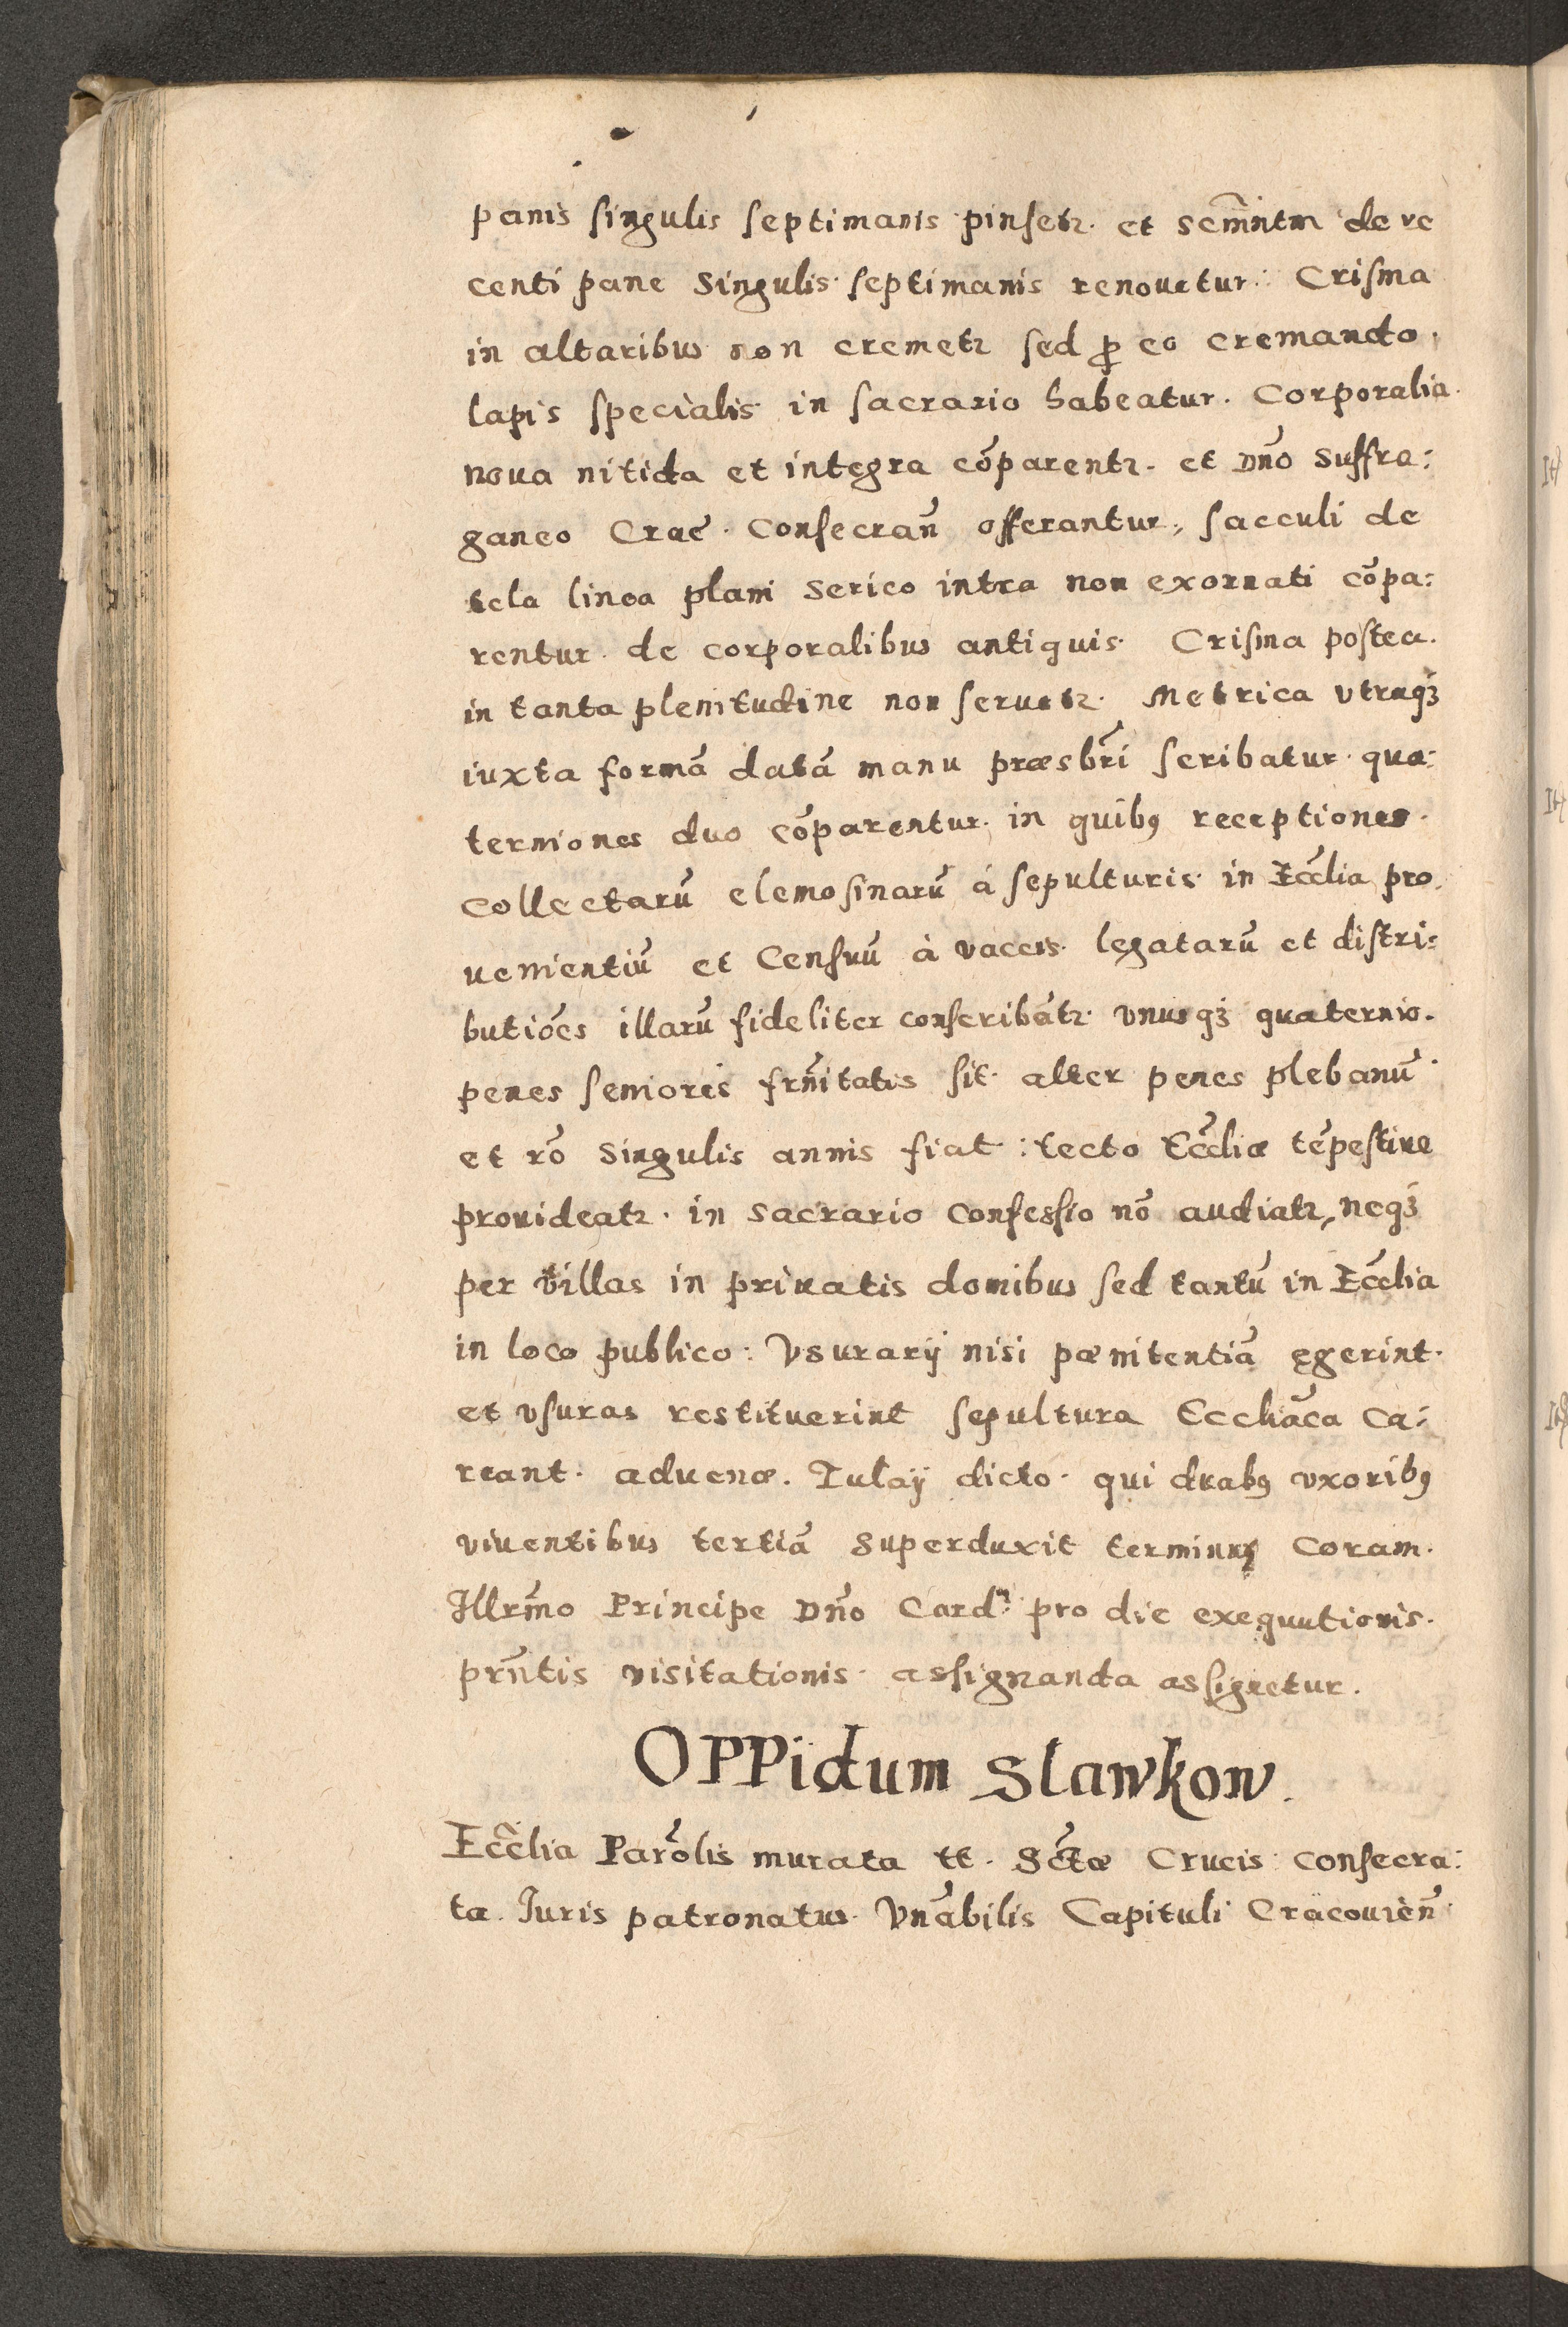 panis singulis septimanis pinsetr. et Scm̃ntm de re
centi pane Singulis septimanis renouetur: Crisma
in altaribus non cremetr sed ꝓ eo cremando,
lapis specialis in sacrario habeatur. Corporalia
noua nitida et integra cõparentr. et Dño Suffra:
ganeo Crac̃. Consecrañ offerantur, sacculi de
tela linea plani Serico intra non exornati cõpa:
rentur de corporalibus antiquis Crisma postea.
in tanta plenitudine non seruetr. Metrica vtraqȝ
iuxta formã datã manu præsbr̃i scribatur qua:
terniones duo cõparentur in quibꝰ receptiones.
collectarũ elemosinarũ à sepulturis in Eccl̃ia pro.
uenientiũ et Censuũ à vaccis legatarũ et distri:
butiões illarũ fideliter conscribãtr. vnusqȝ quaternio.
penes seniores frñitatis sit alter penes plebanũ
et rõ Singulis annis fiat: tecto Eccl̃iæ tẽpestiue
prouideatr. in Sacrario Confessio nõ audiatr, neqȝ
per villas in priuatis domibus sed tantũ in Eccl̃ia
in loco publico: Vsurarij nisi pænitentiã egerint.
et vsuras restituerint sepultura Eccliãca Ca:
reant. aduenæ. Tulaij dicto. qui duabꝰ vxoribꝰ
viuentibus tertiã Superduxit terminus Coram.
Illrm̃o Principe Dño Cardˡⁱ pro die exequutionis.
prñtis visitationis assignanda assignetur.
OPPidum Slawkow.
Eccl̃ia Parõlis murata tt. Sc̃tæ Crucis consecra:
ta. Iuris patronatus Vnãbilis Capituli Cracouieñ